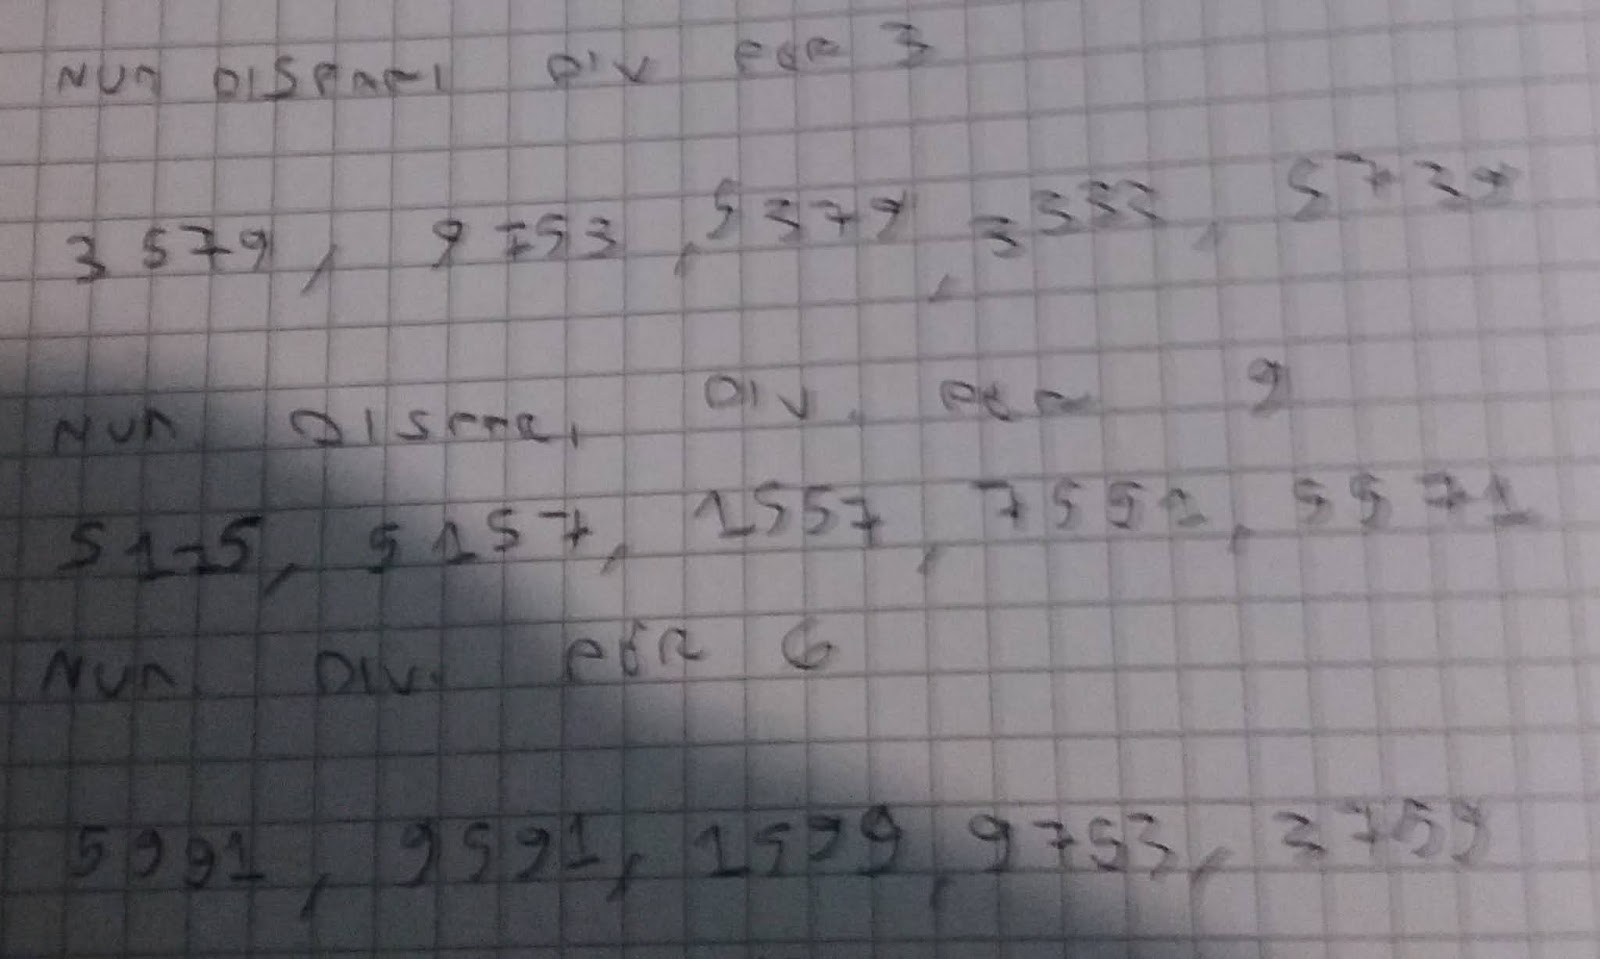 NUM DISPARI DIV PER 3
3579, 9753, 5379, 3333, 5739
NUM DISPARI DIV. PER 9
5175, 5157, 1557, 7551, 5571
NUM DIV. PER 6
5991, 9591, 1599, 9753, 3759